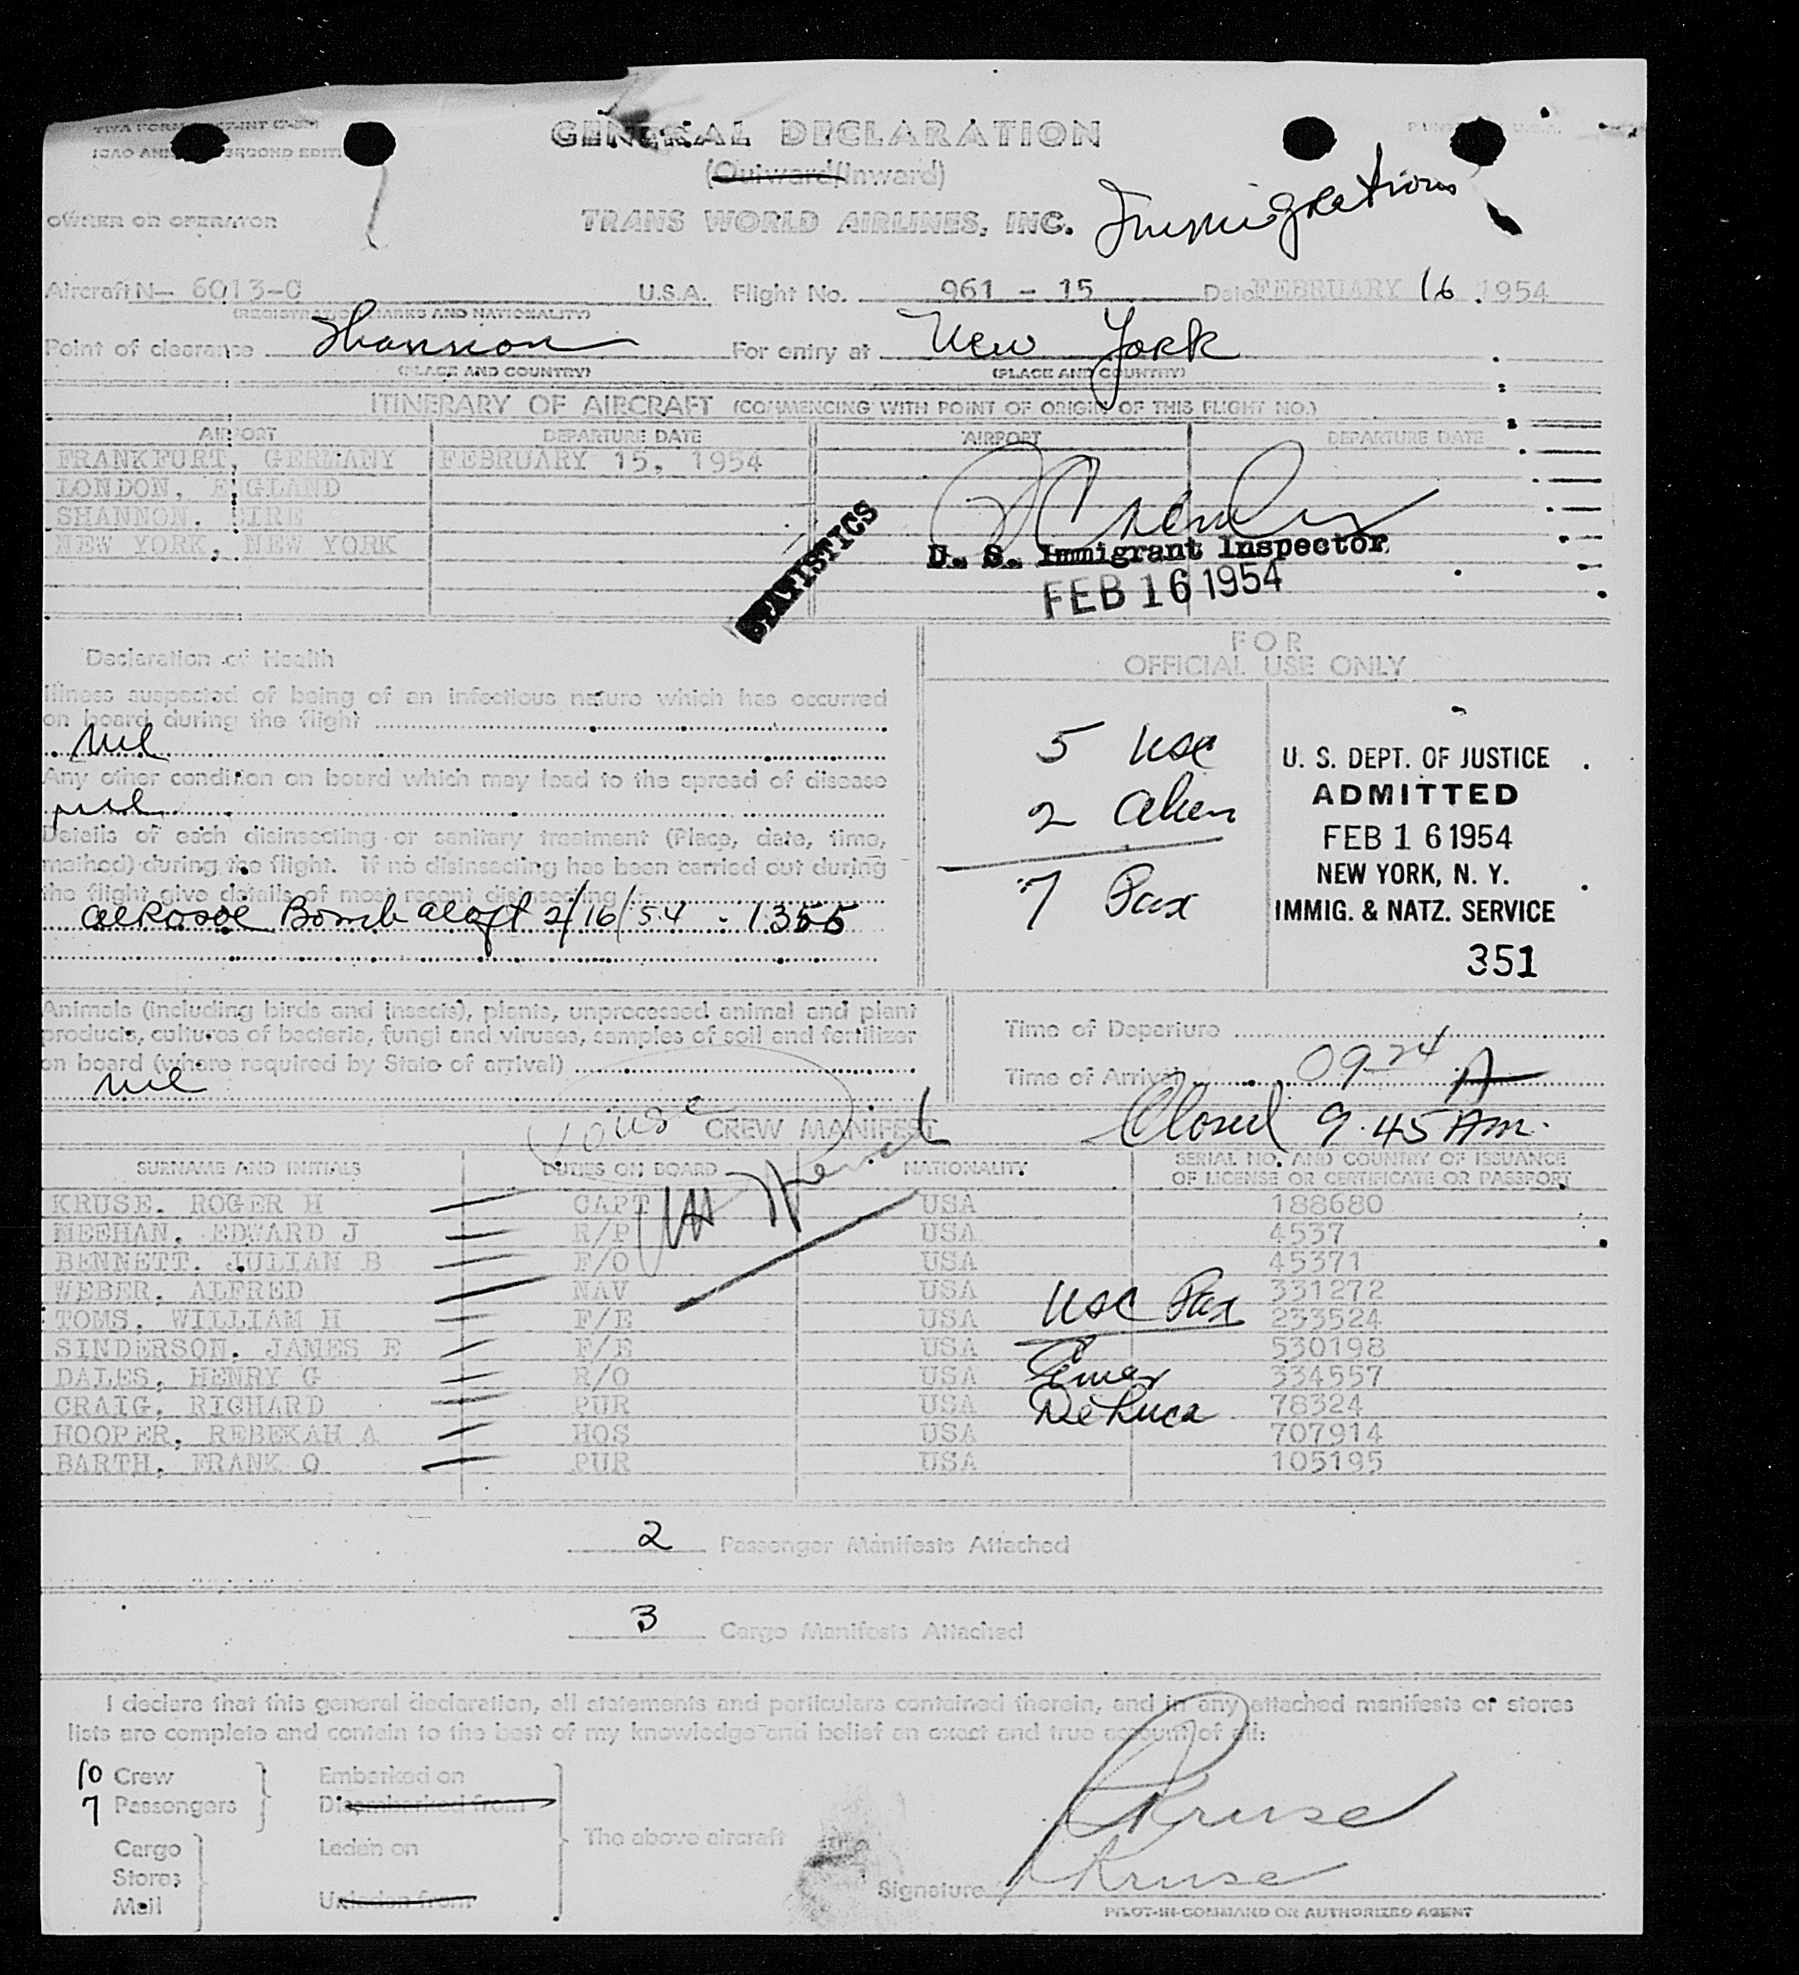 GENERAL DECLARATION
(Outward/Inward)
OWNER OR OPERATOR TRANS WORLD AIRLINES, INC. Immigration
Aircraft N- 6013-C U.S.A. Flight No. 961 - 15 Date FEBRUARY 16 1954
(REGISTRATION MARKS AND NATIONALITY)
Point of clearance Shannon For entry at New York
(PLACE AND COUNTRY) (PLACE AND COUNTRY)
ITINERARY OF AIRCRAFT (COMMENCING WITH POINT OF ORIGIN OF THIS FLIGHT NO.)
AIRPORT DEPARTURE DATE AIRPORT DEPARTURE DATE
FRANKFURT, GERMANY FEBRUARY 15, 1954
LONDON, ENGLAND
SHANNON, EIRE
NEW YORK, NEW YORK
STATISTICS
U. S. Immigrant Inspector
FEB 16 1954
Declaration of Health
Illness suspected of being of an infectious nature which has occurred
on board during the flight
nil
Any other condition on board which may lead to the spread of disease
nil
Details of each disinsecting or sanitary treatment (Place, date, time,
method) during the flight. If no disinsecting has been carried out during
the flight give details of most recent disinsecting
aerosol Bomb aloft 2/16/54 - 1355
FOR
OFFICIAL USE ONLY
5 usc
2 alien
7 Pax
U. S. DEPT. OF JUSTICE
ADMITTED
FEB 16 1954
NEW YORK, N. Y.
IMMIG. & NATZ. SERVICE
351
Animals (including birds and insects), plants, unprocessed animal and plant
products, cultures of bacteria, fungi and viruses, samples of soil and fertilizer
on board (where required by State of arrival)
nil
Time of Departure
Time of Arrival 0924 A
Closed 9.45 Am.
CREW MANIFEST
SURNAME AND INITIALS DUTIES ON BOARD NATIONALITY SERIAL NO. AND COUNTRY OF ISSUANCE
OF LICENSE OR CERTIFICATE OR PASSPORT
KRUSE, ROGER H CAPT USA 188680
MEEHAN, EDWARD J R/P USA 4537
BENNETT, JULIAN B F/O USA 45371
WEBER, ALFRED NAV USA 331272
TOMS, WILLIAM H F/E USA 233524
SINDERSON, JAMES E F/E USA 530198
DALES, HENRY G R/O USA 334557
CRAIG, RICHARD PUR USA 78324
HOOPER, REBEKAH A HOS USA 707914
BARTH, FRANK O PUR USA 105195
usc Pax
DeLuca
2 Passenger Manifests Attached
3 Cargo Manifests Attached
I declare that this general declaration, all statements and particulars contained therein, and in any attached manifests or stores
lists are complete and contain to the best of my knowledge and belief an exact and true account of all:
10 Crew Embarked on
7 Passengers Disembarked from
Cargo Laden on The above aircraft
Stores
Mail Unladen from
Kruse
Signature Kruse
PILOT-IN-COMMAND OR AUTHORIZED AGENT